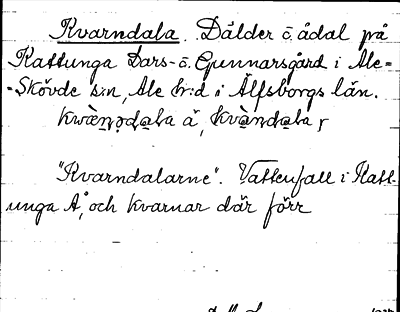 Kvarndala. Dälder o. ådal på
Kattunga Lars- o. Gunnarsgård i Ale-
-Skövde s:n, Ale h:d i Älfsborgs län.
kwàṇḍala å, kvàndala,
"Kvarndalarne". Vattenfall i Katt-
unga Å, och kvarnar där förr